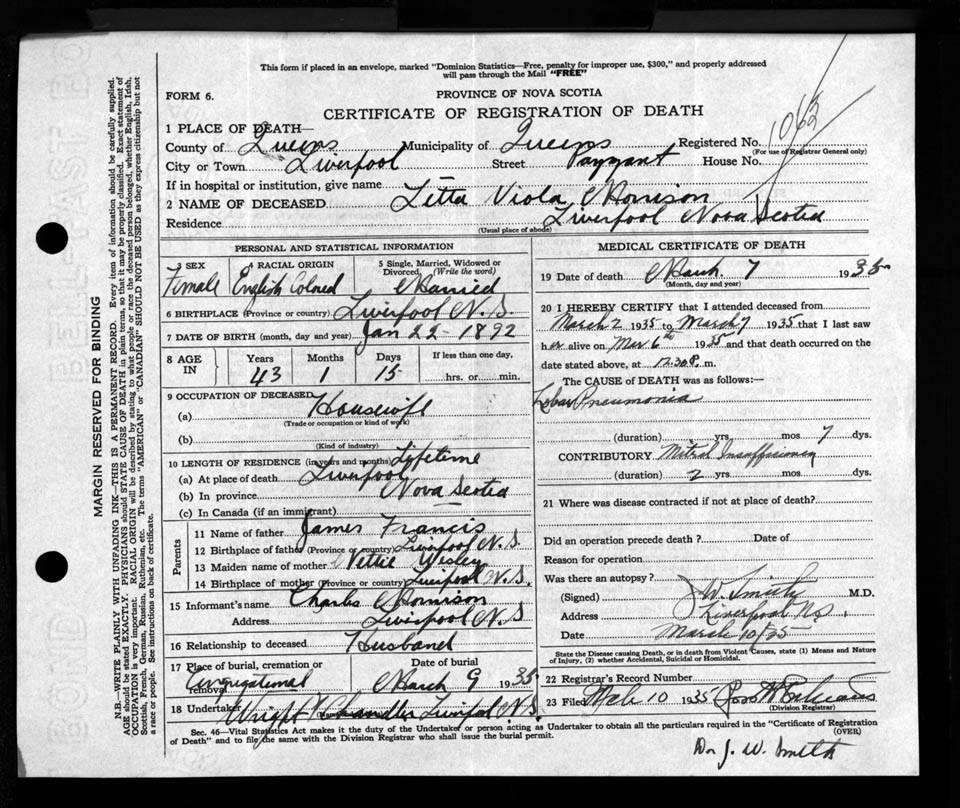 This form if placed in an envelope, marked "Dominion Statistics—Free, penalty for improper use, $300," and properly addressed
will pass through the Mail "FREE"
FORM 6.
PROVINCE OF NOVA SCOTIA
CERTIFICATE OF REGISTRATION OF DEATH
1 PLACE OF DEATH—
County of Queens Municipality of Queens Registered No. 1062
(For use of Registrar General only)
City or Town Liverpool Street Payzant House No.
If in hospital or institution, give name
2 NAME OF DECEASED Letta Viola Morrison
Residence Liverpool Nova Scotia
(Usual place of abode)
PERSONAL AND STATISTICAL INFORMATION
3 SEX 4 RACIAL ORIGIN 5 Single, Married, Widowed or Divorced (Write the word)
Female English Colored Married
6 BIRTHPLACE (Province or country) Liverpool N.S.
7 DATE OF BIRTH (month, day and year) Jan 22 - 1892
8 AGE IN Years Months Days If less than one day,
43 1 15 hrs. or min.
9 OCCUPATION OF DECEASED
(a) Housewife
(Trade or occupation or kind of work)
(b)
(Kind of industry)
10 LENGTH OF RESIDENCE (in years and months) Lifetime
(a) At place of death Liverpool
(b) In province Nova Scotia
(c) In Canada (if an immigrant)
Parents
11 Name of father James Francis
12 Birthplace of father (Province or country) Liverpool N.S.
13 Maiden name of mother Nettie Wesley
14 Birthplace of mother (Province or country) Liverpool N.S.
15 Informant's name Charles Morrison
Address Liverpool N.S.
16 Relationship to deceased Husband
17 Place of burial, cremation or removal Date of burial
Congregational March 9 1935
18 Undertaker Wright Chandler Liverpool N.S.
MEDICAL CERTIFICATE OF DEATH
19 Date of death March 7 1935
(Month, day and year)
20 I HEREBY CERTIFY that I attended deceased from
March 2 1935 to March 7 1935 that I last saw
her alive on Mar 6th 1935 and that death occurred on the
date stated above, at 12.30 P. m.
The CAUSE of DEATH was as follows:—
Lobar Pneumonia
(duration) yrs mos 7 dys.
CONTRIBUTORY Mitral Insufficiency
(duration) 2 yrs mos dys.
21 Where was disease contracted if not at place of death?
Did an operation precede death? Date of
Reason for operation
Was there an autopsy?
(Signed) J.W. Smith M.D.
Address Liverpool N.S.
Date March 10/35
State the Disease causing Death, or in death from Violent Causes, state (1) Means and Nature
of Injury, (2) whether Accidental, Suicidal or Homicidal.
22 Registrar's Record Number
23 Filed Mch 10 1935
(Division Registrar)
Sec. 46—Vital Statistics Act makes it the duty of the Undertaker or person acting as Undertaker to obtain all the particulars required in the "Certificate of Registration
of Death" and to file the same with the Division Registrar who shall issue the burial permit. (OVER)
Dr J. W. Smith
MARGIN RESERVED FOR BINDING
N.B.—WRITE PLAINLY WITH UNFADING INK—THIS IS A PERMANENT RECORD. Every item of information should be carefully supplied.
AGE should be stated EXACTLY. PHYSICIANS should STATE CAUSE OF DEATH in plain terms, so that it may be properly classified. Exact statement of
OCCUPATION is very important. RACIAL ORIGIN will be described by stating to what people or race the deceased person belonged, whether English, Irish,
Scottish, French, German, Russian, Ruthenian, etc. The terms "AMERICAN" or "CANADIAN" SHOULD NOT BE USED as they express citizenship but not
a race or people. See instructions on back of certificate.